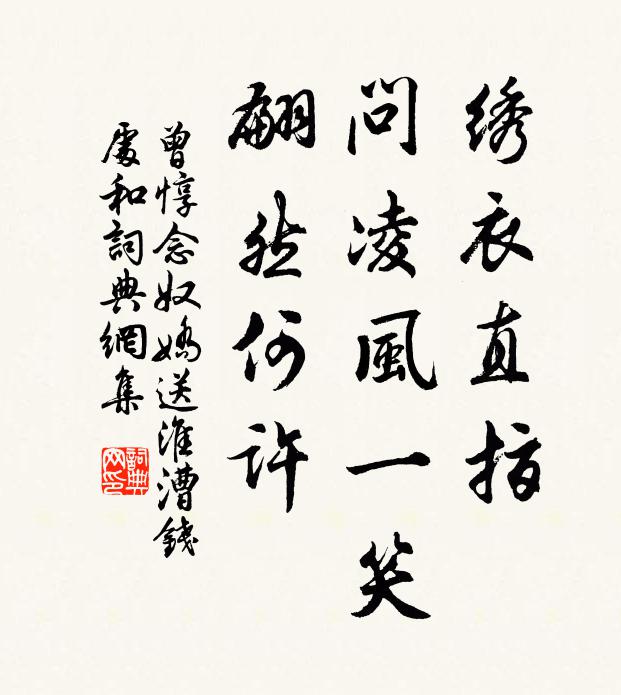 绣衣直指
問凌風一笑
翩然何許
曾惇念奴嬌送淮漕錢
處和詞典網集
詞典網印